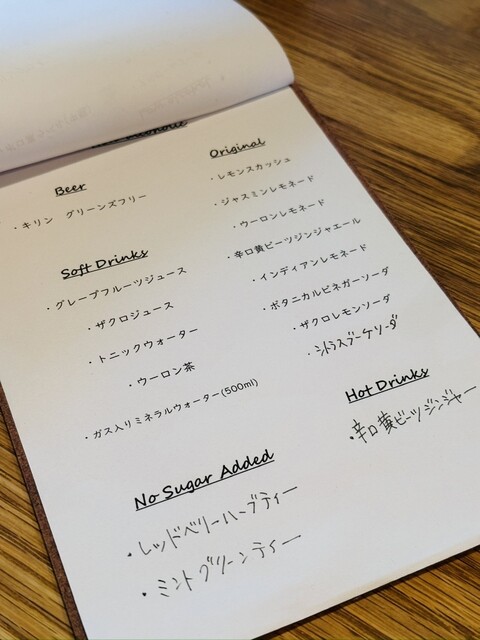 Beer
・キリン グリーンズフリー
Soft Drinks
・グレープフルーツジュース
・ザクロジュース
・トニックウォーター
・ウーロン茶
・ガス入りミネラルウォーター(500ml)
No Sugar Added
・レッドベリーハーブティー
・ミントグリーンティー
Original
・レモンスカッシュ
・ジャスミンレモネード
・ウーロンレモネード
・辛口黄ビーツジンジャエール
・インディアンレモネード
・ボタニカルビネガーソーダ
・ザクロレモンソーダ
・シトラスブーケソーダ
Hot Drinks
・辛口黄ビーツジンジャー